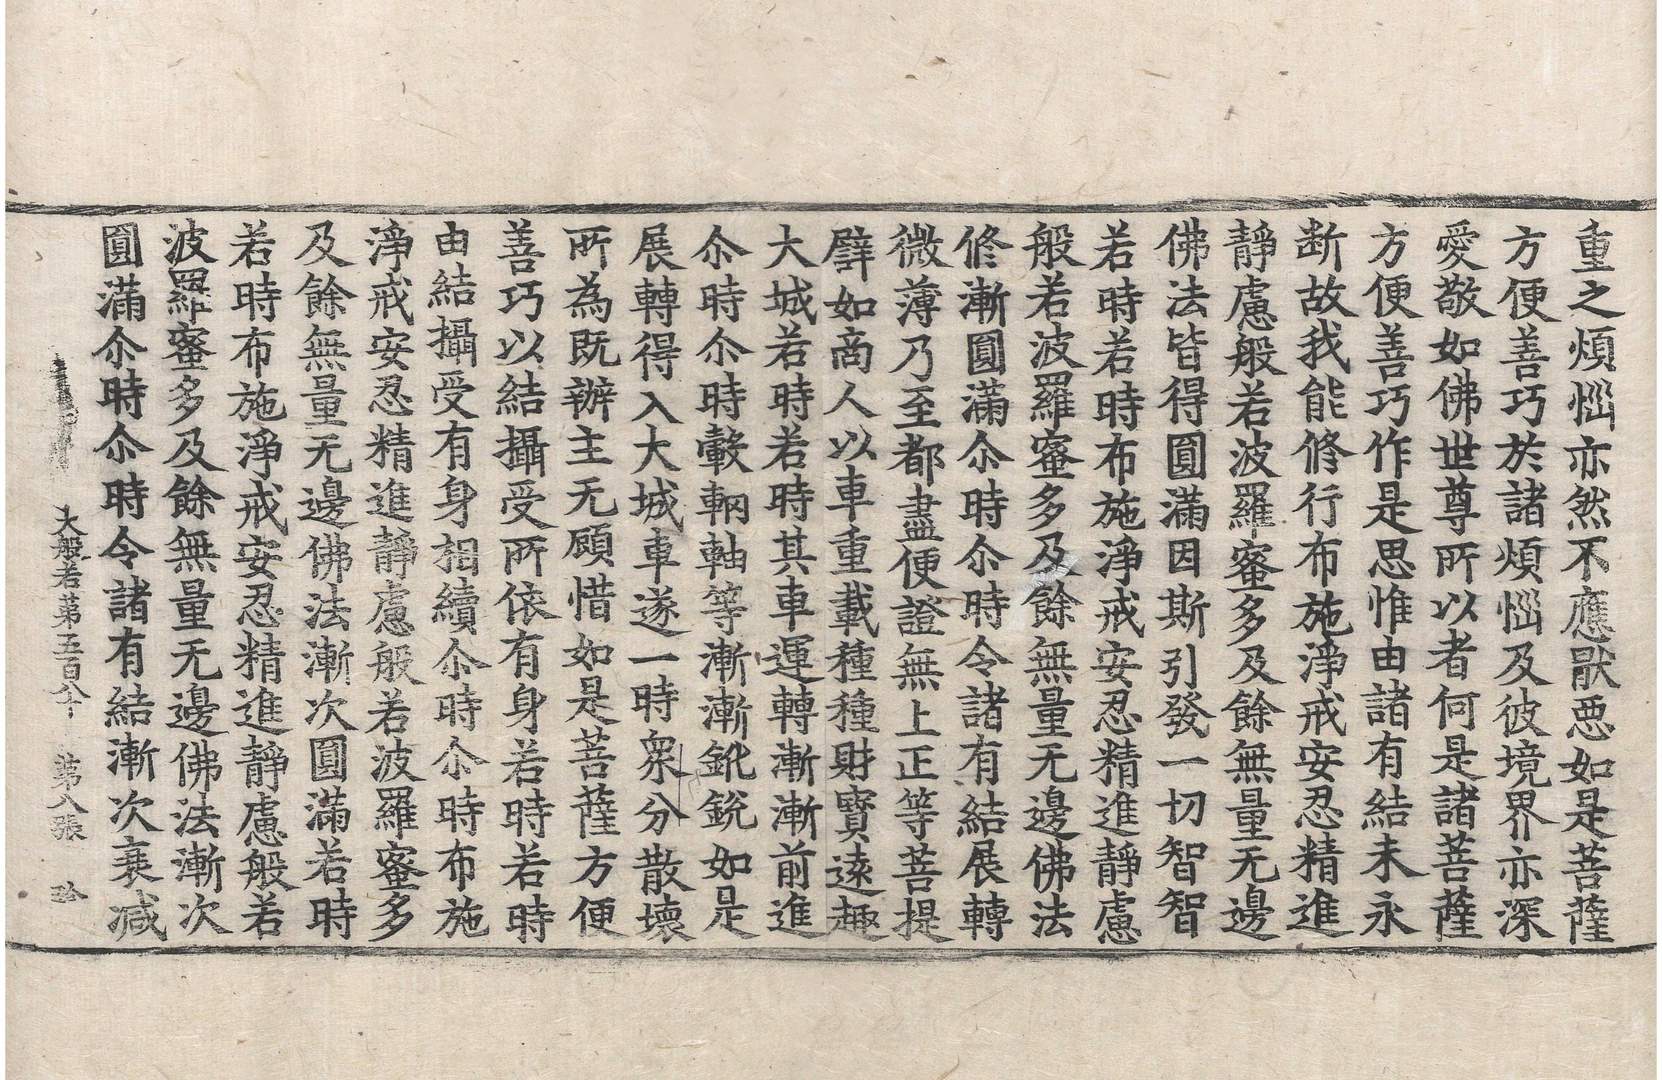 重之煩惱亦然不應猒惡如是菩薩
方便善巧於諸煩惱及彼境界亦深
愛敬如佛世尊所以者何是諸菩薩
方便善巧作是思惟由諸有結未永
断故我能修行布施淨戒安忍精進
靜慮般若波羅蜜多及餘無量无邊
佛法皆得圓滿因斯引發一切智智
若時若時布施淨戒安忍精進靜慮
般若波羅蜜多及餘無量无邊佛法
修漸圓滿尒時尒時令諸有結展轉
微薄乃至都盡便證無上正等菩提
譬如商人以車重載種種財寶遠趣
大城若時若時其車運轉漸漸前進
尒時尒時轂輞軸等漸漸銚銳如是
展轉得入大城車遂一時衆分散壞
所為既辦主无顧惜如是菩薩方便
善巧以結攝受所依有身若時若時
由結攝受有身相續尒時尒時布施
淨戒安忍精進靜慮般若波羅蜜多
及餘無量无邊佛法漸次圓滿若時
若時布施淨戒安忍精進靜慮般若
波羅蜜多及餘無量无邊佛法漸次
圓滿尒時尒時令諸有結漸次衰減
大般若第五百八十 第八張 珎